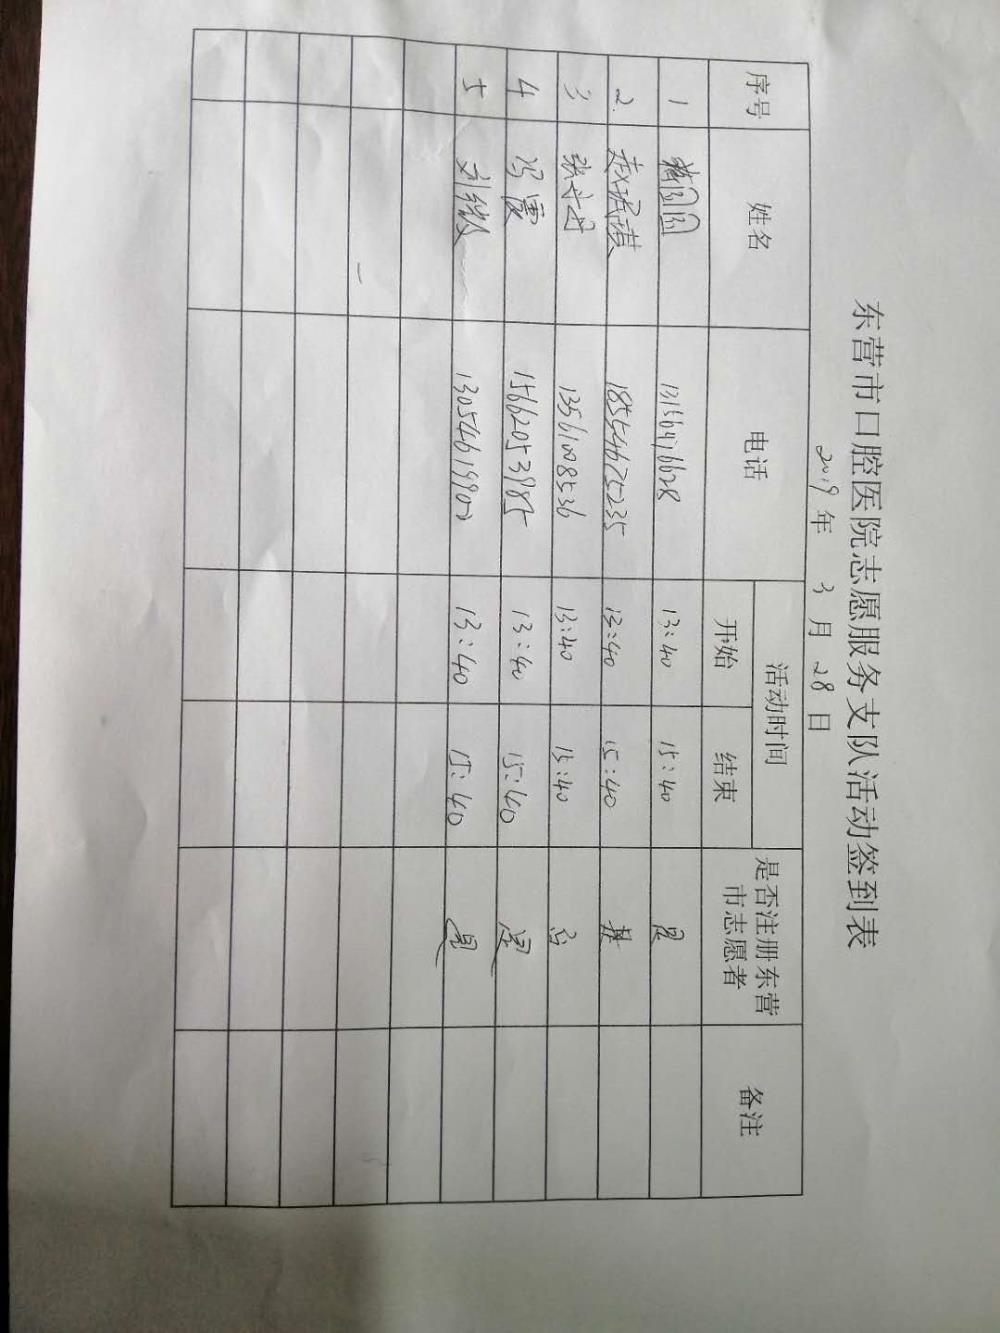 东营市口腔医院志愿服务支队活动签到表
2019年 3月 28日
序号 姓名 电话 活动时间 是否注册东营市志愿者 备注
开始 结束
1 圆圆 13:40 15:40 是
2 18554675235 13:40 15:40 是
3 张丹丹 13561008536 13:40 15:40 否
4 冯霞 15662053985 13:40 15:40 是
5 刘 13054619900 13:40 15:40 是